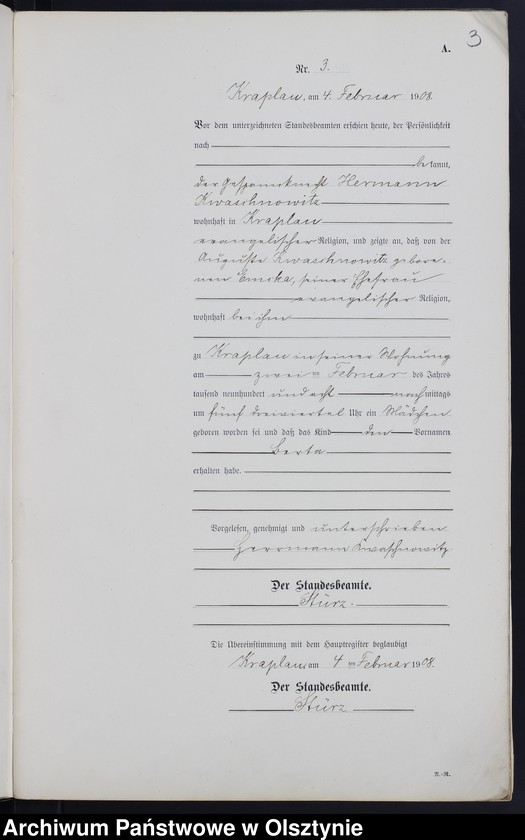 3
A.
Nr. 3.
Kraplau, am 4. Februar 1908.
Vor dem unterzeichneten Standesbeamten erschien heute, der Persönlichkeit
nach
bekannt,
der Gespannknecht Hermann
Kwaschnowitz
wohnhaft in Kraplau
evangelischer Religion, und zeigte an, daß von der
Auguste Kwaschnowitz gebore-
nen Emska, seiner Ehefrau
evangelischer Religion,
wohnhaft bei ihm
zu Kraplau in seiner Wohnung
am zweiten Februar des Jahres
tausend neunhundert und acht nachmittags
um fünf dreiviertel Uhr ein Mädchen
geboren worden sei und daß das Kind den Vornamen
Berta
erhalten habe.
Vorgelesen, genehmigt und unterschrieben
Herrmann Kwaschnowitz
Der Standesbeamte.
Stürz.
Die Übereinstimmung mit dem Hauptregister beglaubigt
Kraplau, am 4 ten Februar 1908.
Der Standesbeamte.
Stürz
A.-R.
Archiwum Państwowe w Olsztynie